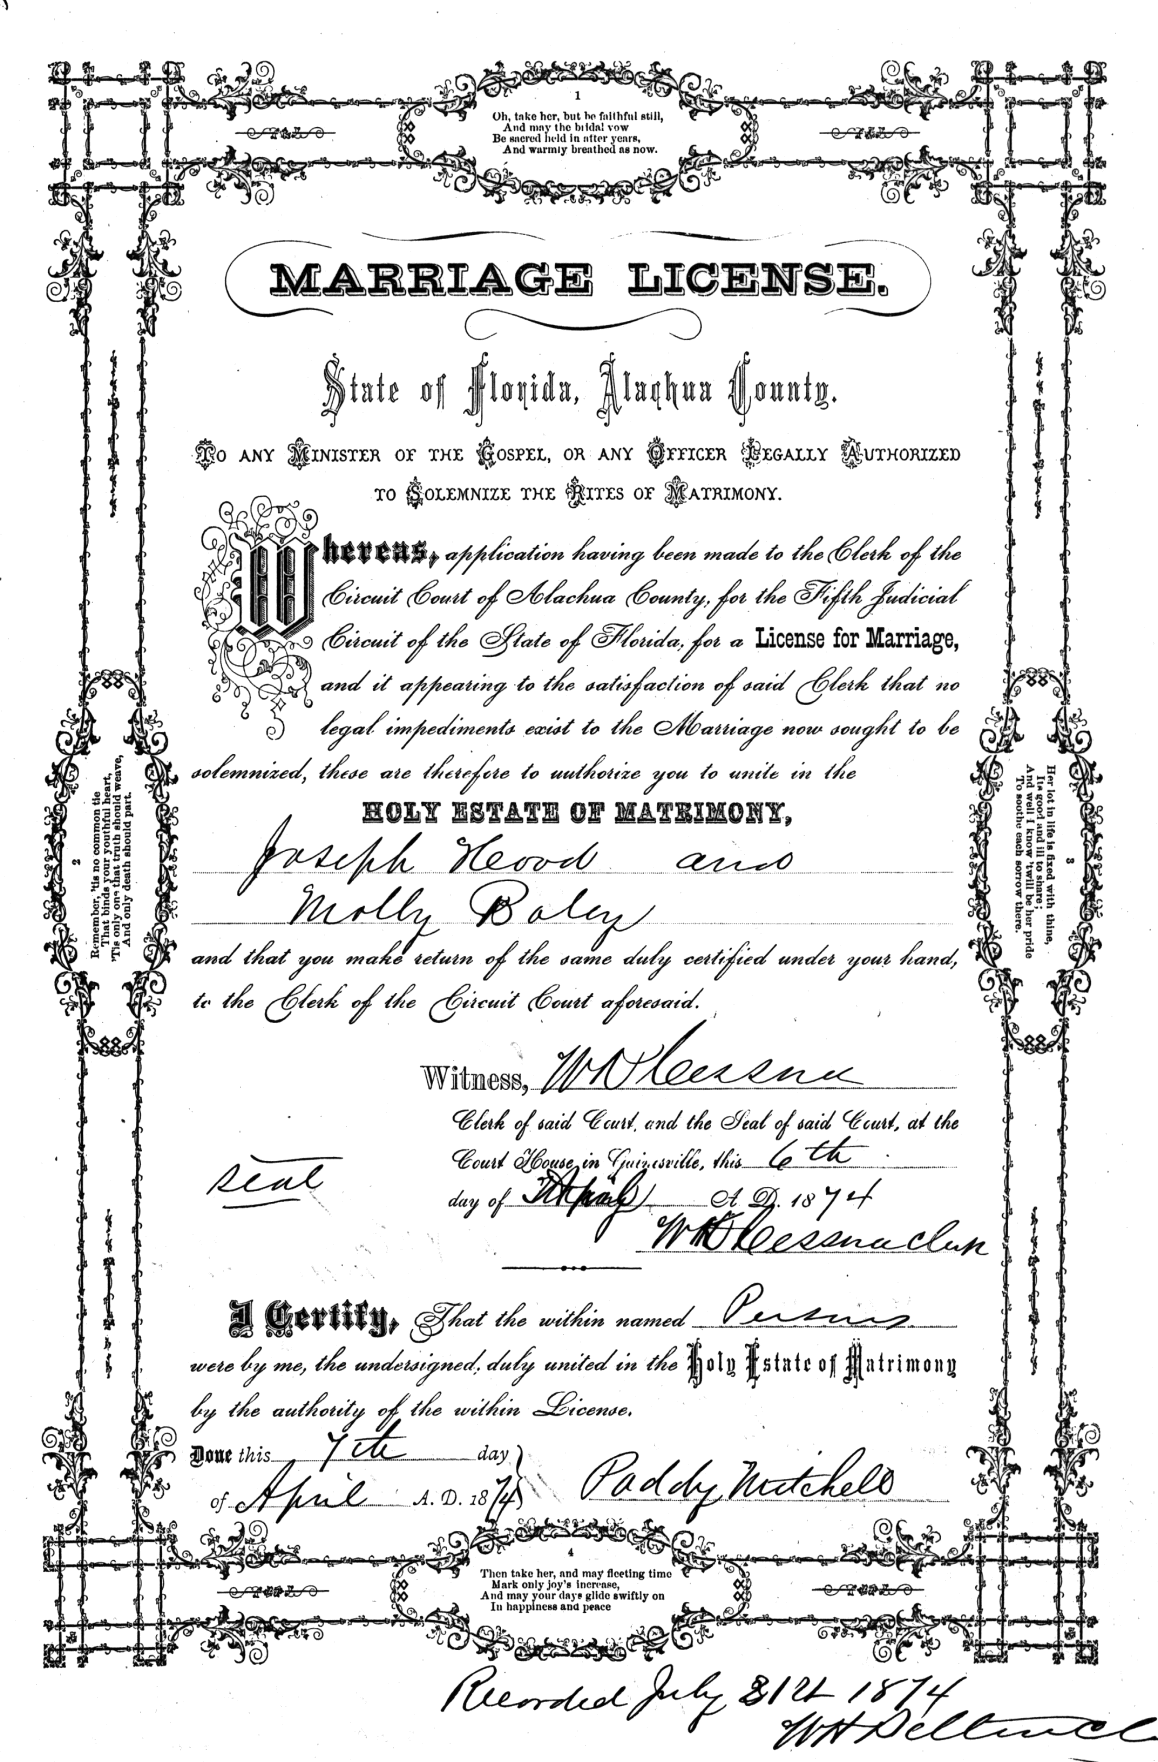 1
Oh, take her, but be faithful still,
And may the bridal vow
Be sacred held in after years,
And warmly breathed as now.
MARRIAGE LICENSE.
State of Florida, Alachua County.
To any Minister of the Gospel, or any Officer Legally Authorized
to Solemnize the Rites of Matrimony.
Whereas, application having been made to the Clerk of the
Circuit Court of Alachua County, for the Fifth Judicial
Circuit of the State of Florida, for a License for Marriage,
and it appearing to the satisfaction of said Clerk that no
legal impediments exist to the Marriage now sought to be
solemnized, these are therefore to authorize you to unite in the
HOLY ESTATE OF MATRIMONY,
Joseph Hood and
Molly Baley
and that you make return of the same duly certified under your hand,
to the Clerk of the Circuit Court aforesaid.
Witness, W K Cessna
Clerk of said Court, and the Seal of said Court, at the
Court House in Gainesville, this 6th
day of April A. D. 1874
seal
W K Cessna Clerk
I Certify, That the within named Persons
were by me, the undersigned, duly united in the Holy Estate of Matrimony
by the authority of the within License.
Done this 7th day
of April A. D. 1874
Paddy Mitchell
2
Remember, 'tis no common tie
That binds your youthful heart,
'Tis only one that truth should weave,
And only death should part.
3
Her lot in life is fixed with thine,
Its good and ill to share;
And well I know 'twill be her pride
To soothe each sorrow there.
4
Then take her, and may fleeting time
Mark only joy's increase,
And may your days glide swiftly on
In happiness and peace
Recorded July 31st 1874